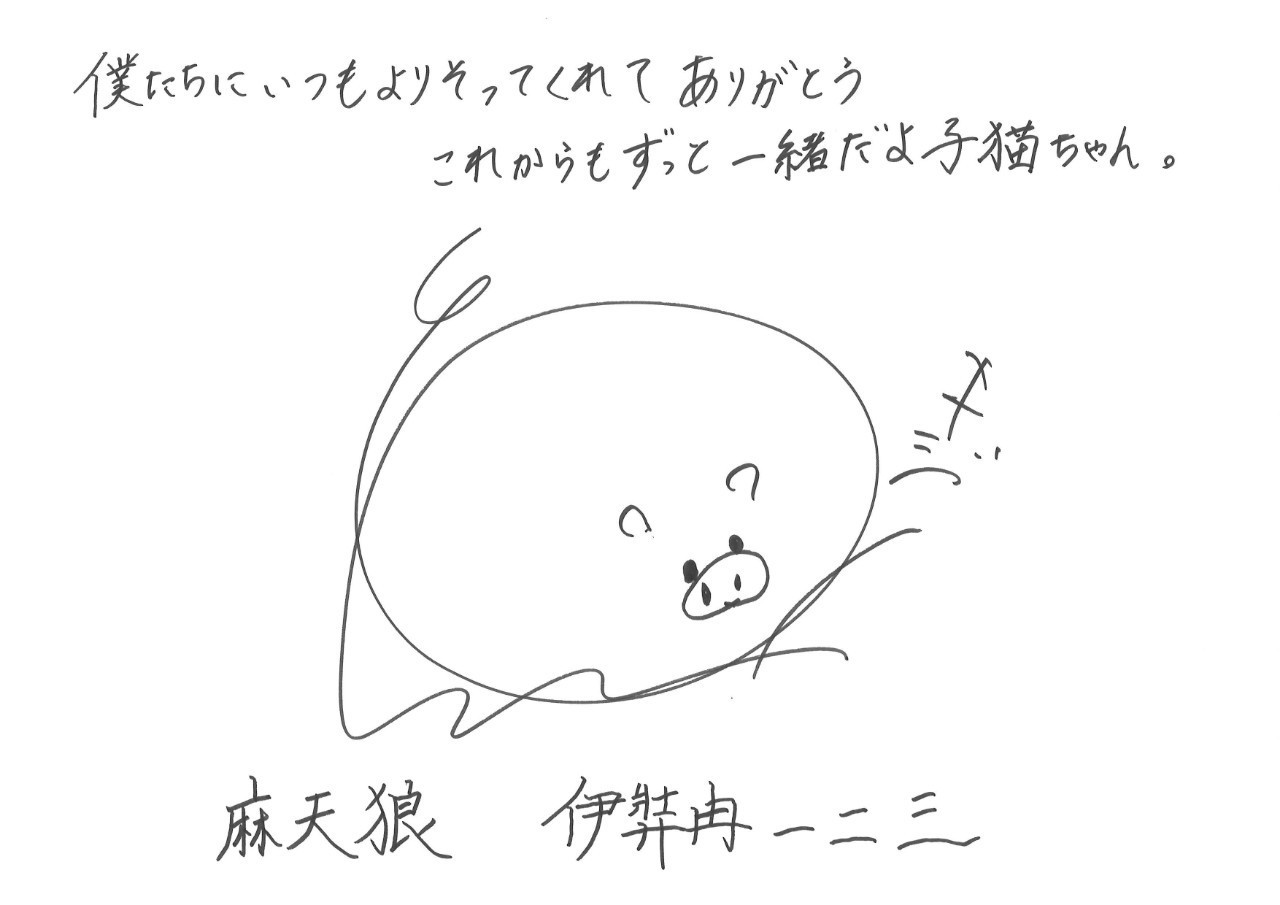 僕たちにいつもよりそってくれて ありがとう
これからもずっと一緒だよ子猫ちゃん。
麻天狼 伊弉冉一二三